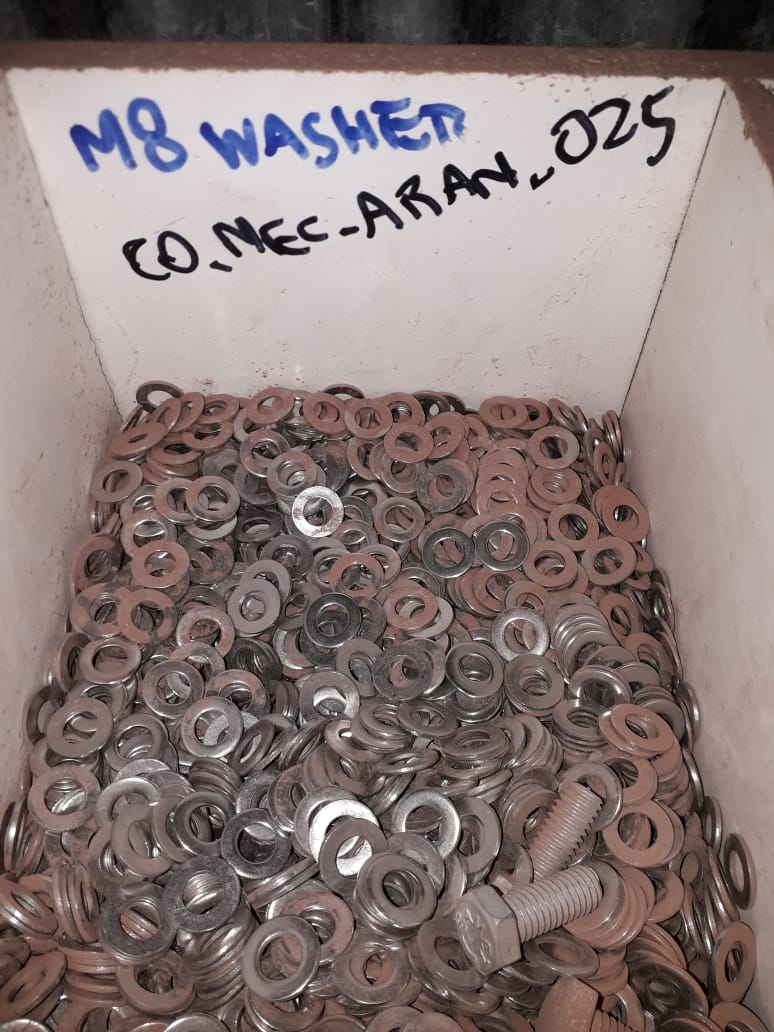 M8 WASHER
CO_MEC_ARAN_025